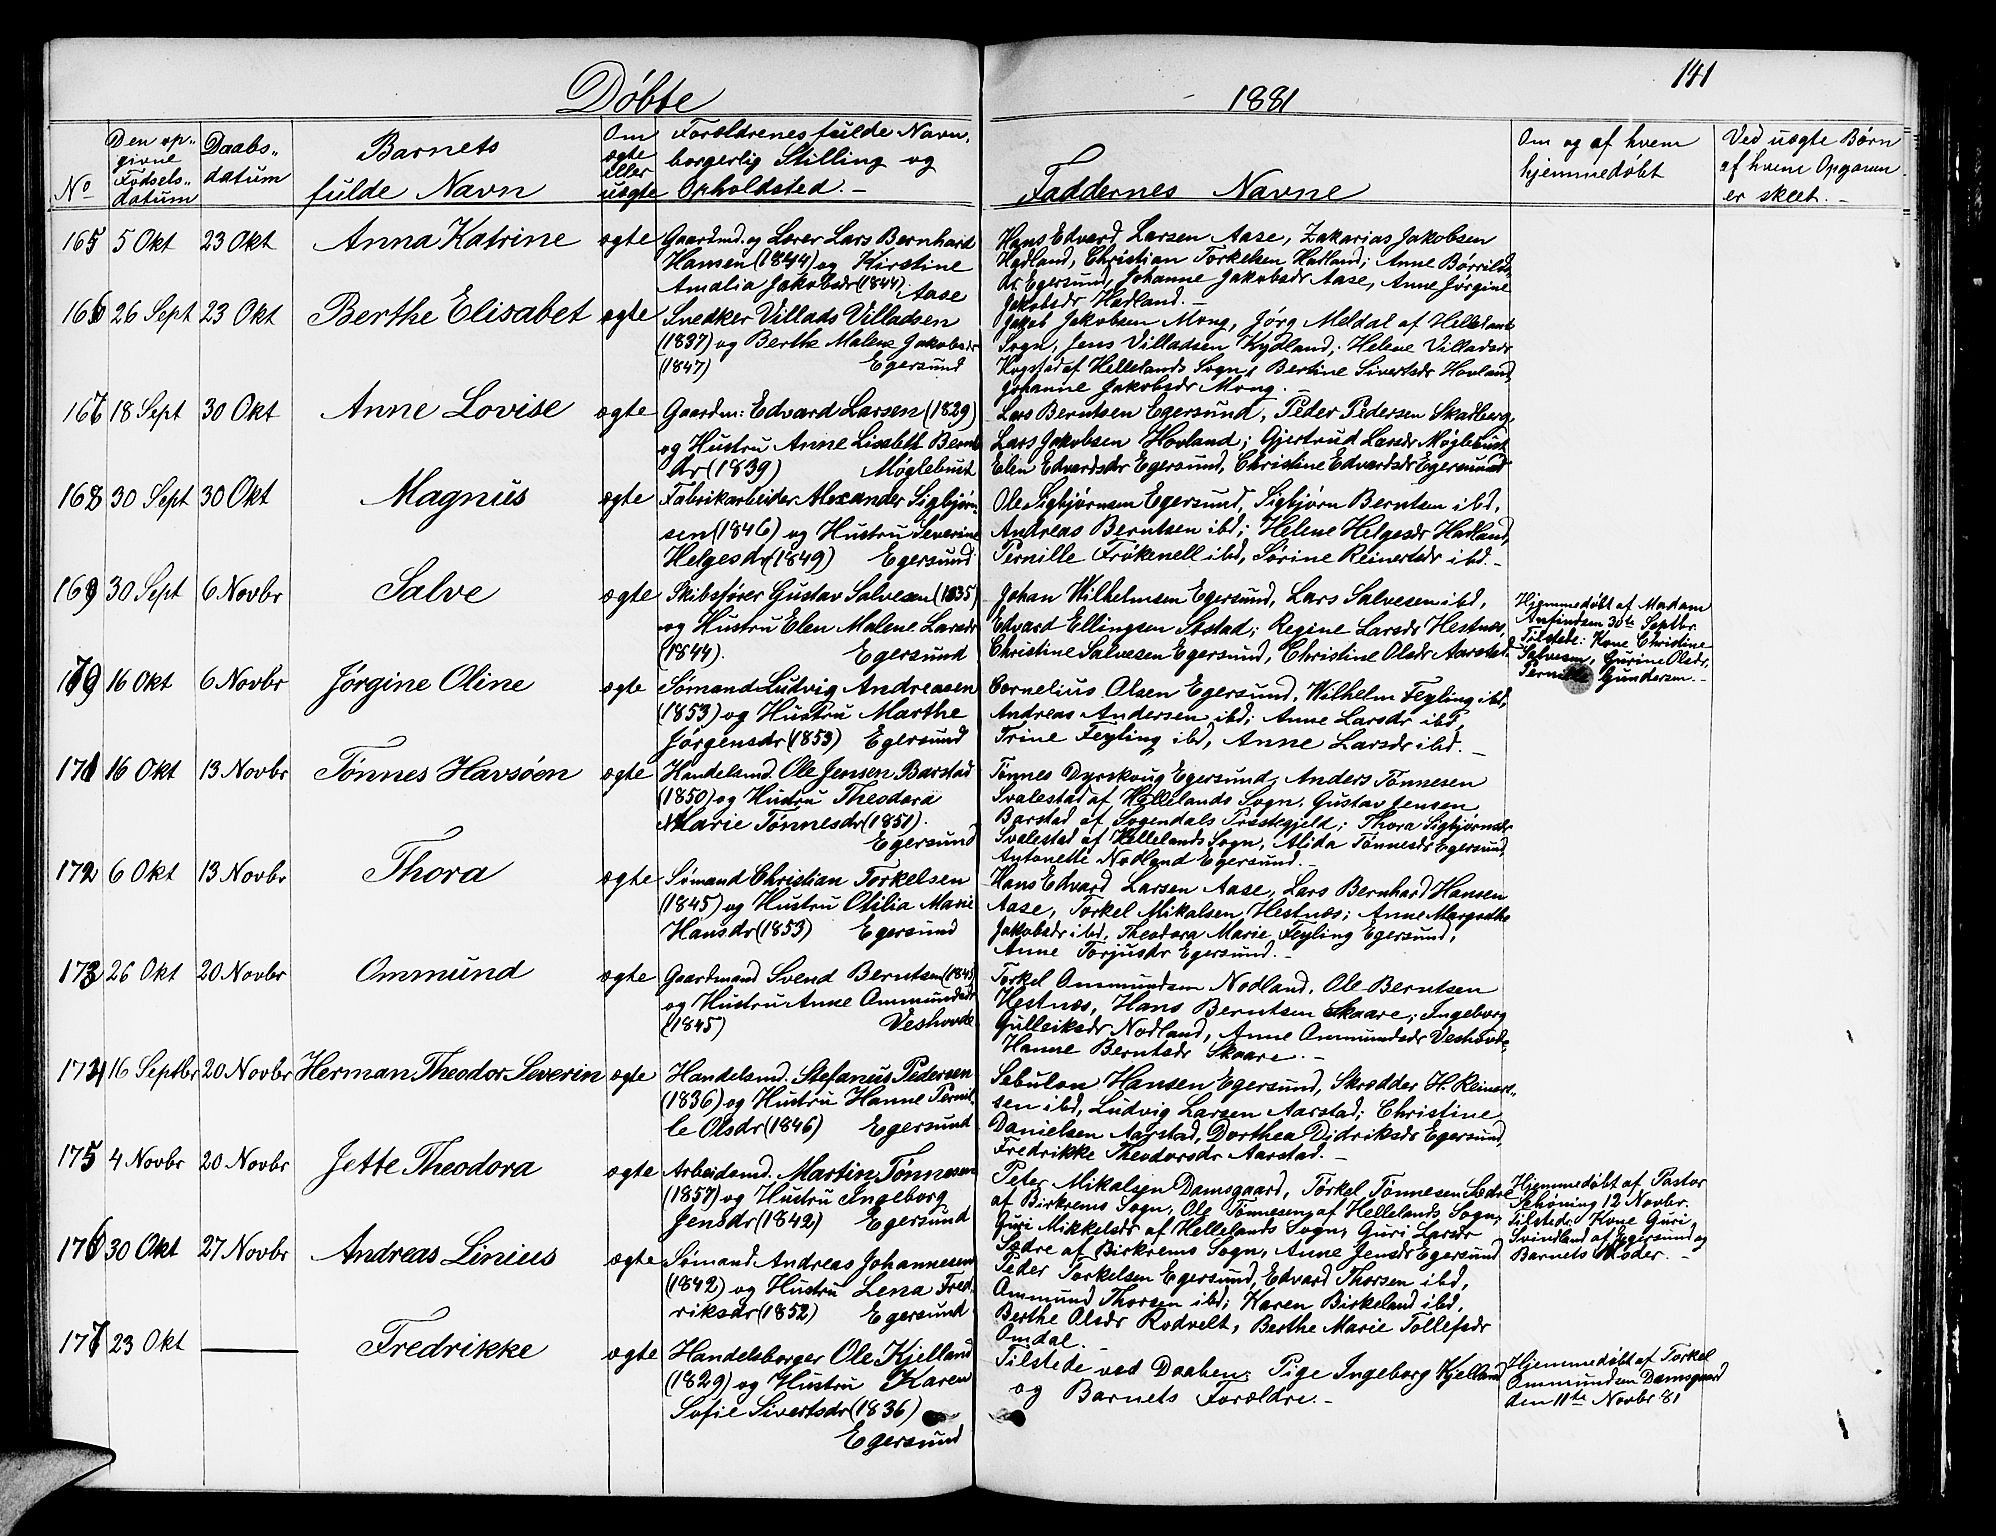 Døbte
1881
141
No
Den op-
givne
Fødsels-
datum
Daabs-
datum
Barnets
fulde Navn
Om
ægte
eller
uægte
Forældrenes fulde Navn,
borgerlig Stilling og
Opholdsted.-
Faddernes Navne
Om og af hvem
hjemmedøbt
Ved uægte Børn
af hvem Opgaven
er skeet.-
165 5 Okt 23 Okt Anna Katrine ægte
Gaardmd. og Lærer Lars Bernhard
Hansen (1844) og Kirstine
Amalia Jakobsdr (1844).
Aase
Hans Edvard Larsen Aase, Zakarias Jakobsen
Hadland, Christian Torkelsen Hadland; Anne
Egersund, Johanne Jakobsdr Aase, Anne Jørgine
Jakobsdr Hadland.-
166 26 Sept 23 Okt Berthe Elisabet ægte
Snedker Villads Villadsen
(1837) og Berthe Malene Jakobsdr
(1847) Egersund
Jakob Jakobsen Mong, Jørg Meldal af Hellelands
Sogn, Jens Villadsen Kydland; Helene Villadsdr
Hogstad af Hellelands Sogn, Bertine Sivertsdr Hovland,
Johanne Jakobsdr Mong.-
167 18 Sept 30 Okt Anne Lovise ægte
Gaardm: Edvard Larsen (1829)
og Hustru Anne Lisabeth Bernts
dr (1839) Møglebust
Lars Berntsen Egersund, Peder Pedersen Skadberg,
Lars Jakobsen Hovland; Gjertrud Larsdr Møglebust
Elin Edvardsdr Egersund, Christine Edvardsdr Egersund
168 30 Sept 30 Okt Magnus ægte
Fabrikarbeider Alexander Sigbjørn-
sen (1846) og Hustru Severine
Helgesdr (1849) Egersund
Ole Sigbjørnsen Egersund, Sigbjørn Berntsen ibd,
Andreas Berntsen ibd; Helene Helgesdr Hadland,
Pernille Frøkenell ibd, Sørine Reinertsdr ibd.-
169 30 Sept 6 Novbr Salve ægte
Skibsfører Gustav Salvesen (1835)
og Hustru Elen Malene Larsdr
(1844). Egersund
Johan Wilhelmsen Egersund, Lars Salvesen ibd,
Edvard Ellingsen; Regine Larsdr Hestnes,
Christine Salvesen Egersund, Christine Olsdr Aarstad.
Hjemmedøbt af Madam
Anfindsen 30te Septbr.
Tilstede: Kone Christine
Salvesen, Gurine Olsdr,
Pernille Gundersen.-
170 16 Okt 6 Novbr Jørgine Oline ægte
Sømand Ludvig Andreasen
(1853) og Hustru Marthe
Jørgensdr (1853) Egersund
Cornelius Olsen Egersund, Wilhelm Feyling ibd,
Andreas Andersen ibd; Anne Larsdr ibd,
Trine Feyling ibd, Anne Larsdr ibd.-
171 16 Okt 13 Novbr Tønnes Havsøen ægte
Handelsmd. Ole Jensen Barstad
(1850) og Hustru Theodora
Marie Tønnesdr (1851).
Egersund
Tønnes Dyrskoug Egersund, Anders Tønnesen
Svalestad af Hellelands Sogn, Gustav Jensen
Barstad af Sogendals Præstegjeld; Thora Sigbjørnsdr
Svalestad af Hellelands Sogn, Alida Tønnesdr Egersund,
Antonette Nodland Egersund.-
172 6 Okt 13 Novbr Thora ægte
Sømand Christian Torkelsen
(1845) og Hustru Otilia Marie
Hansdr (1853) Egersund
Hans Edvard Larsen Aase, Lars Bernhard Hansen
Aase, Torkel Mikalsen Hestnes; Anne Margrethe
Jakobsdr ibd, Theodora Marie Feyling Egersund,
Anne Torjusdr Egersund.-
173 26 Okt 20 Novbr Ommund ægte
Gaardmand Svend Berntsen (1845)
og Hustru Anne Ommundsdr
(1845) Veshovde
Torkel Ommundsen Nodland, Ole Berntsen
Hestnes, Hans Berntsen Skaare; Ingeborg
Gulleiksdr Nodland, Anne Ommundsdr Veshovde,
Hanne Berntsdr Skaare.-
174 16 Septbr 20 Novbr Herman Theodor Severin ægte
Handelsmd. Stefanus Pedersen
(1836) og Hustru Hanne Pernil-
le Olsdr (1846) Egersund
Sebulon Hansen Egersund, Skrædder H. Reinert-
sen ibd, Ludvig Larsen Aarstad; Christine
Danielsen Aarstad, Dorthea Didriksdr Egersund,
Fredrikke Theodorsdr Aarstad.-
175 4 Novbr 20 Novbr Jette Theodora ægte
Arbeidsmd. Martin Tønnesen
(1857) og Hustru Ingeborg
Jensdr (1842) Egersund
Peter Mikalsen Damsgaard, Torkel Tønnesen Sædre
af Birkrems Sogn, Ole Tønnesen af Hellelands Sogn,
Guri Mikkelsdr af Hellelands Sogn, Guri Larsdr
Sædre af Birkrems Sogn, Anne Jensdr Egersund
Hjemmedøbt af Pastor
Schøning 12 Novbr.
Tilstede: Kone Guri
Svindland af Egersund og
Barnets Moder.-
176 30 Okt 27 Novbr Andreas Linius ægte
Sømand Andreas Johannesen
(1842) og Hustru Lena Fred-
riksdr (1852) Egersund
Peder Torkelsen Egersund, Edvard Thorsen ibd,
Ommund Thorsen ibd; Karen Birkeland ibd,
Berthe Olsdr Rodvelt, Berthe Marie Tollefsdr
Omdal.-
177 23 Okt — Fredrikke ægte
Handelsborger Ole Kjelland
(1829) og Hustru Karen
Sofie Sivertsdr (1836)
Egersund
Tilstede ved Daaben: Pige Ingeborg Kjelland
og Barnets Forældre.-
Hjemmedøbt af Torkel
Ommundsen Damsgaard
den 11te Novbr 81